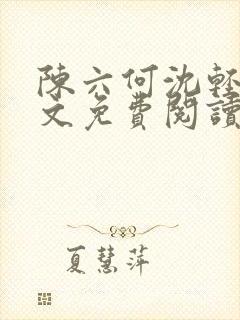 陳六何沈輕
文免費閱讀
夏慧萍